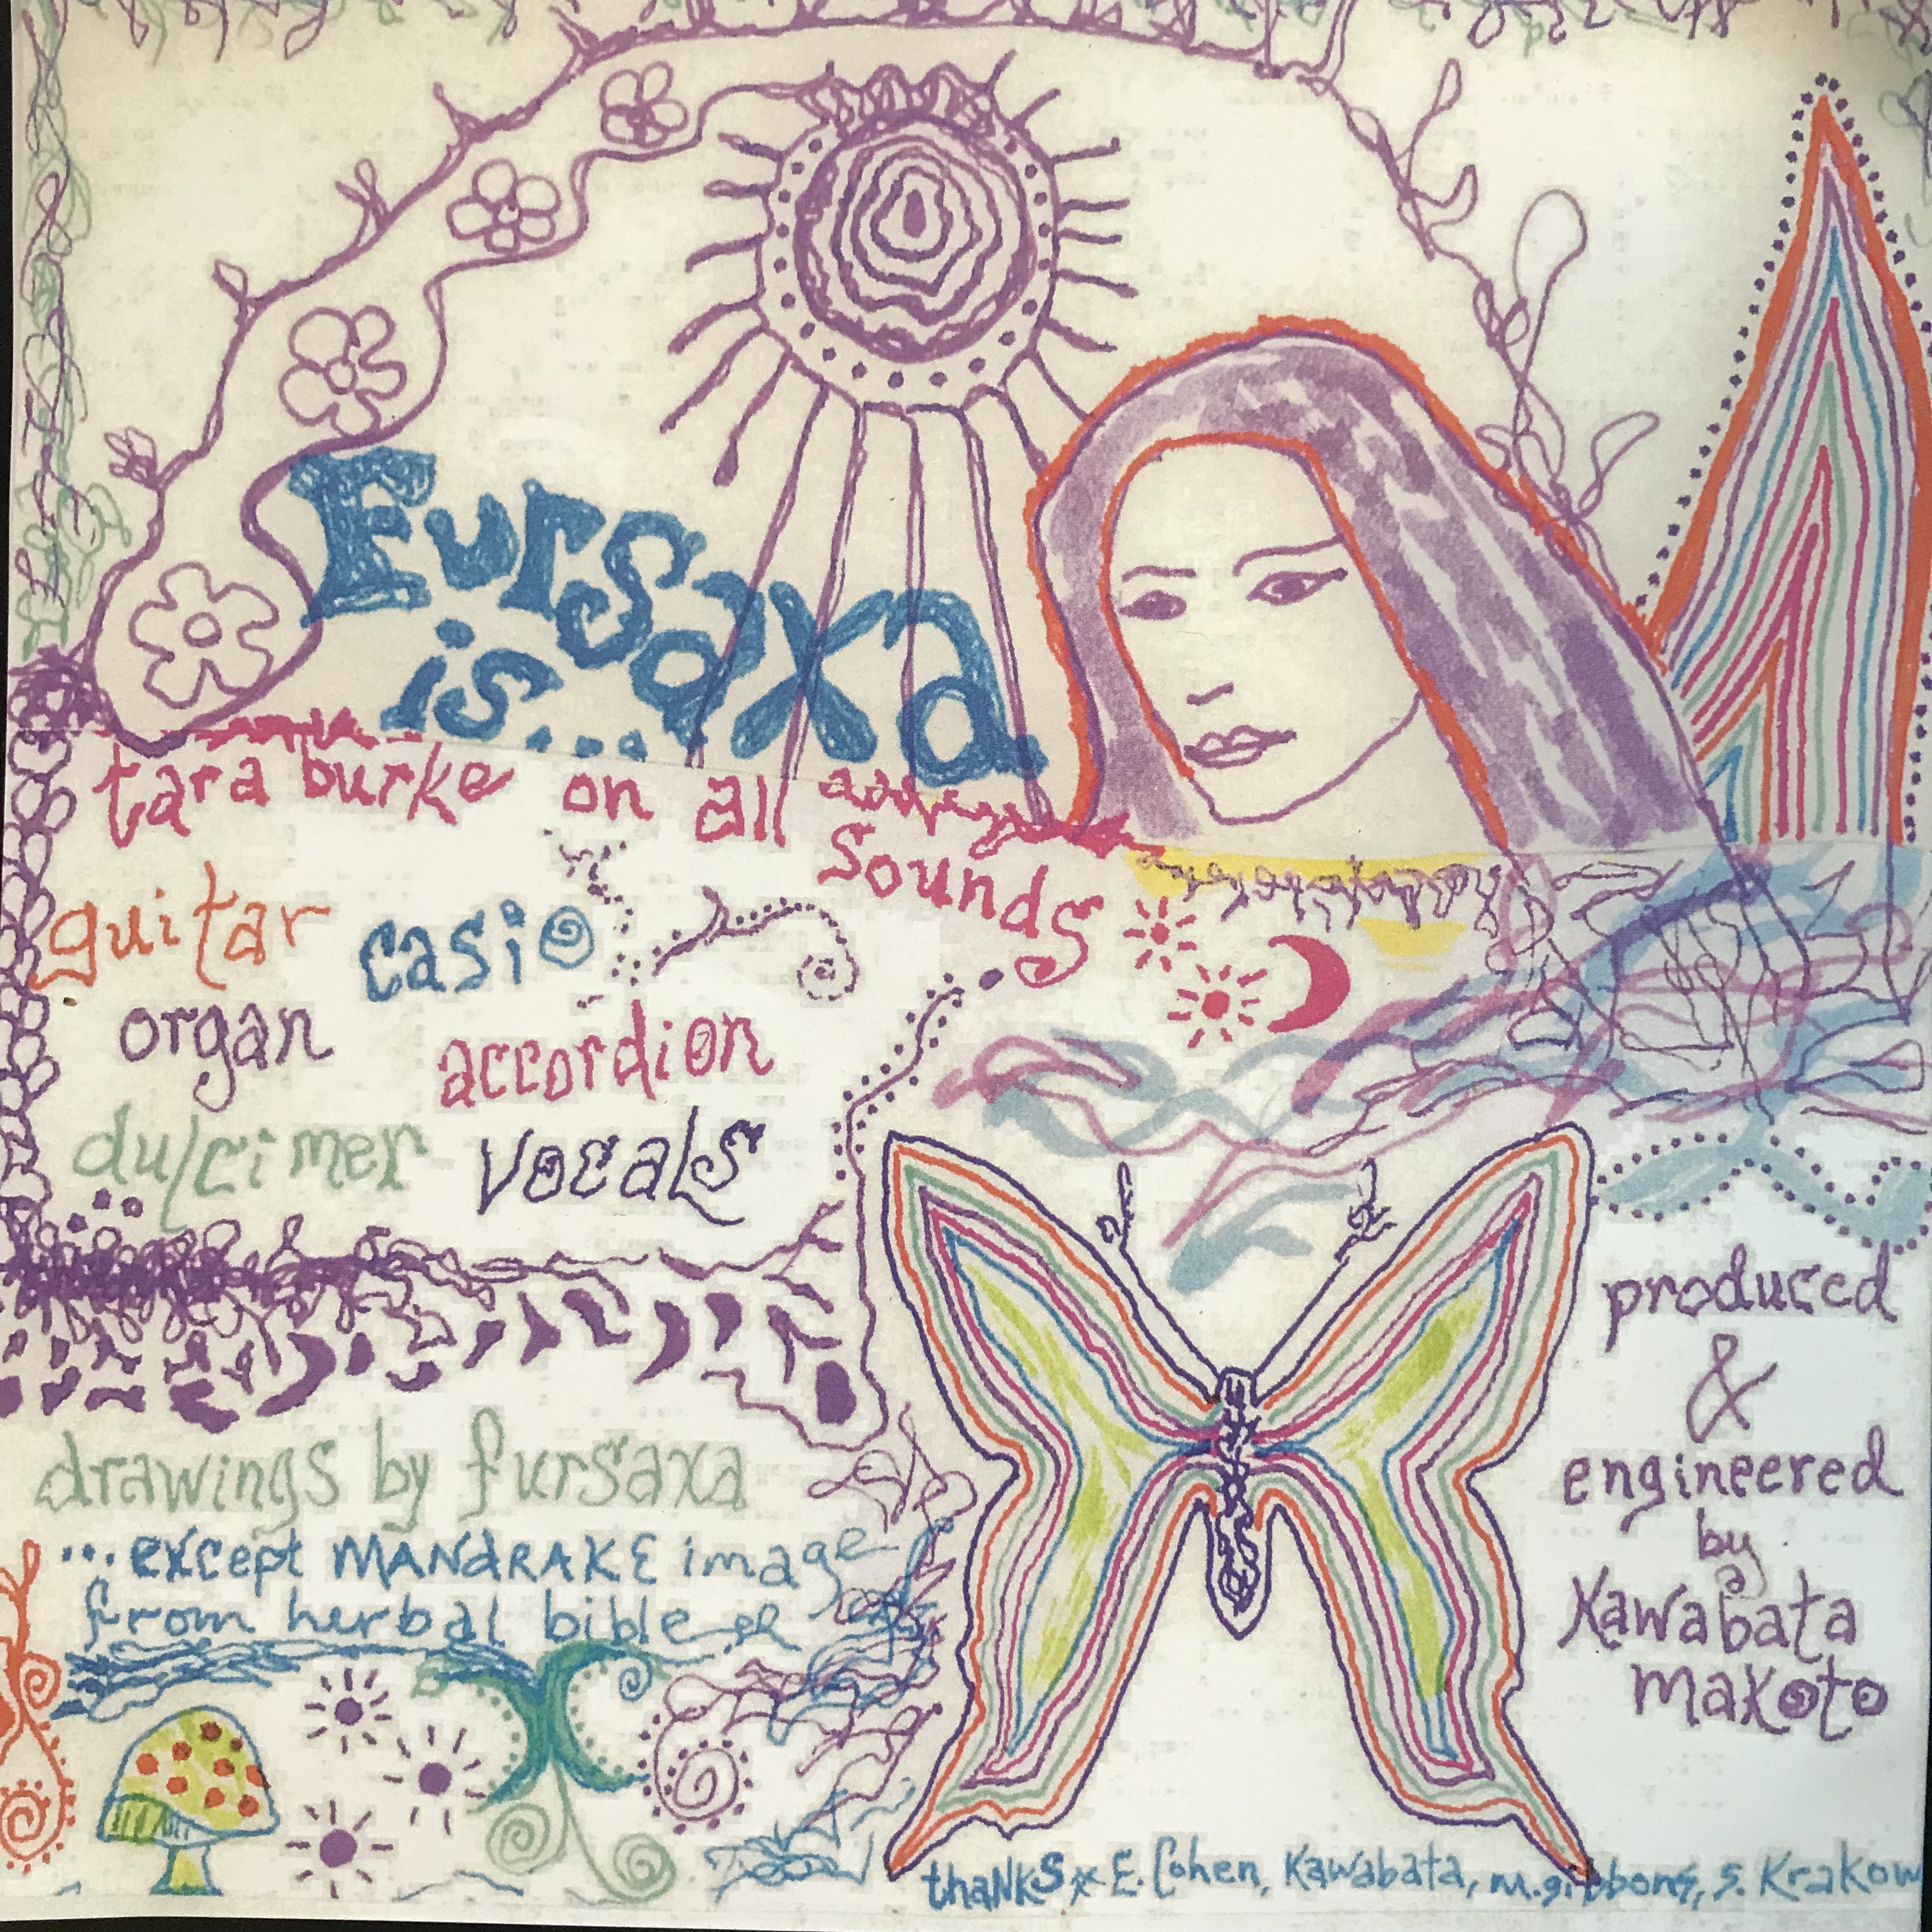 Fursaxa
is...
tara burke on all
sounds
guitar casio
organ accordion
dulcimer vocals
drawings by fursaxa
...except MANdRAKE image
from herbal bible
produced
&
engineered
by
Kawabata
makoto
thanks x E. Cohen, Kawabata, m. gibbons, S. Krakow